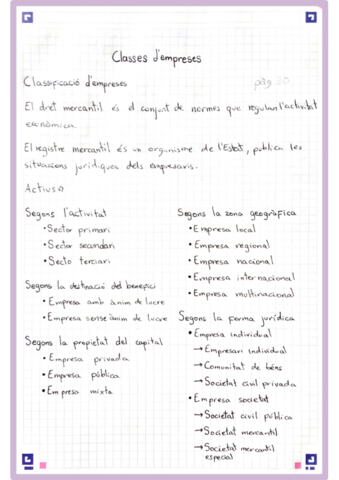 Classes d'empreses
Classificació d'empreses pàg 30
El dret mercantil és el conjunt de normes que regulan l'activitat
econòmica.
El registre mercantil és un organisme de l'Estat, publica les
situacions jurídiques dels empresaris.
Segons l'activitat
• Sector primari
• Sector secundari
• Secto terciari
Segons la destinació del benefici
• Empresa amb ànim de lucre
• Empresa sense ànim de lucre
Segons la propietat del capital
• Empresa privada
• Empresa pública
• Empresa mixta
Segons la zona geogràfica
• Empresa local
• Empresa regional
• Empresa nacional
• Empresa internacional
• Empresa multinacional
Segons la forma jurídica
• Empresa Individual
→ Empresari Individual
→ Comunitat de béns
→ Societat civil privada
• Empresa societat
→ Societat civil pública
→ Societat mercantil
→ Societat mercantil
especial